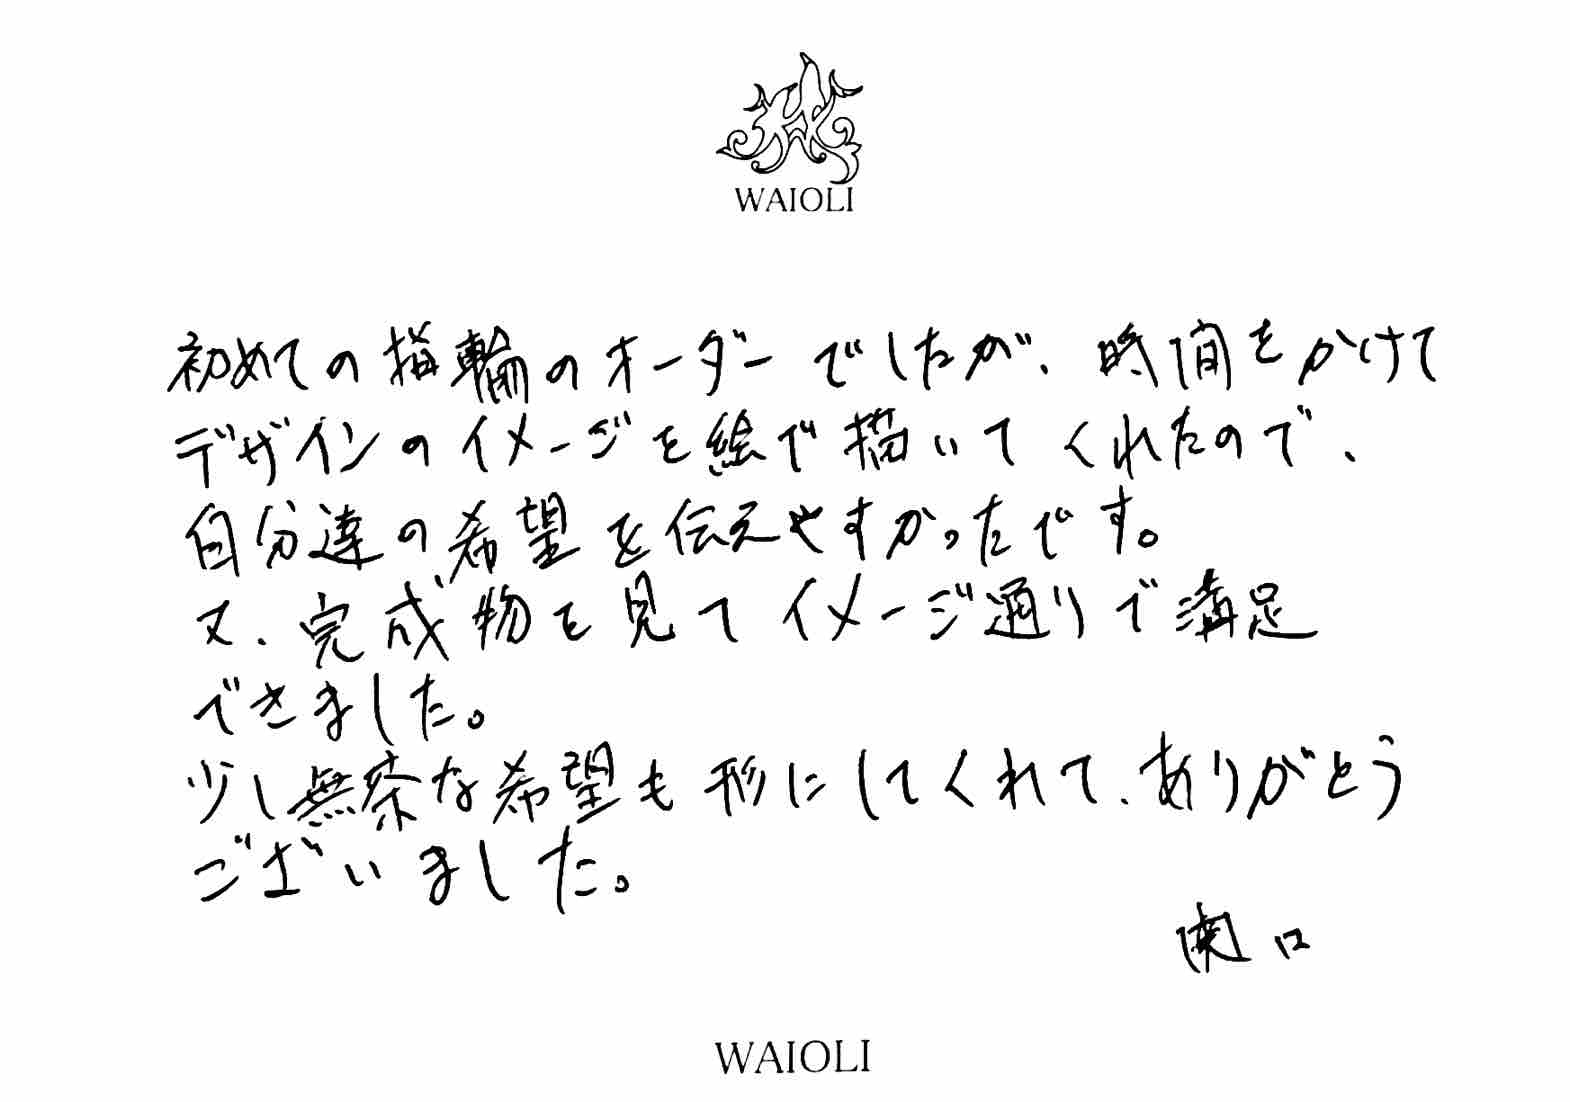 WAIOLI
初めての指輪のオーダーでしたが、時間をかけて
デザインのイメージを絵で描いてくれたので、
自分達の希望を伝えやすかったです。
又、完成物を見てイメージ通りで満足
できました。
少し無茶な希望も形にしてくれて、ありがとう
ございました。
関口
WAIOLI